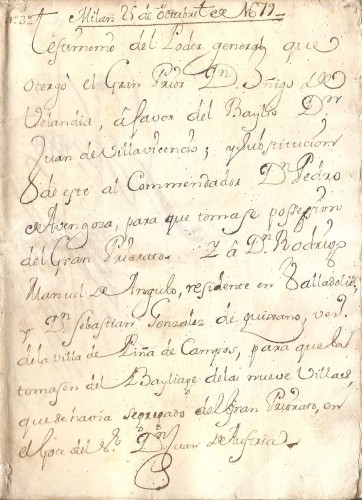 Milan 25 de Octubre de 1679
Testimonio del Poder general que
otorgó el Gran Prior Dn. Yñigo de
Velandia, â favor del Baylio Dn.
Juan de Villavicencio; y substitucion
de este al Commendador Dn. Pedro
de Avengoza, para que tomase possession
del Gran Priorato. Y â Dn. Rodrigo
Manuel de Angulo, residente en Valladolid,
y Dn. Sebastian Gonzalez de quirano, vez.
de la villa de Piña de Campos, para que la
tomasen del Bayliage de las nueve Villas,
que se havia segregado del Gran Priorato, en
el goce del Sr. Dn. Juan de Austria.